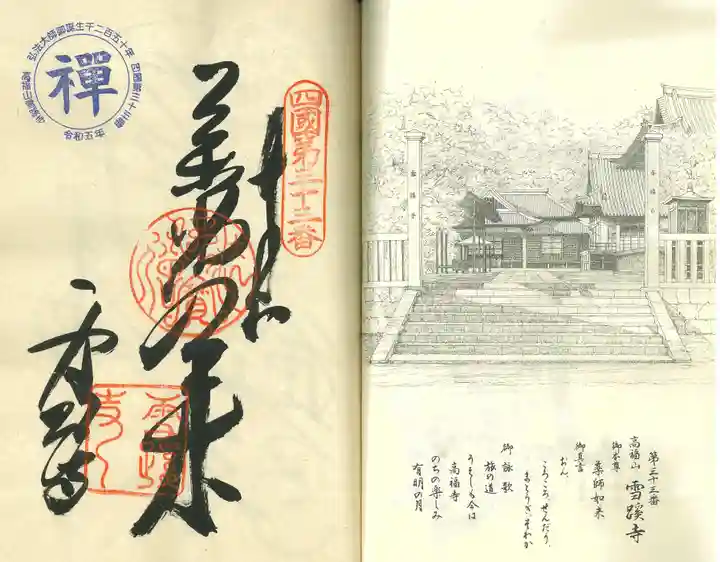 弘法大師御誕生千二百五十年 四國第三十三番
禪
高福山雪蹊寺
令和五年
四國第三十三番
奉納
薬師如来
雪蹊寺
第三十三番
高福山 雪蹊寺
御本尊
薬師如来
御真言
おん、
ころころ、せんだり、
まとうぎ、そわか
御詠歌
旅の道
うえしも今は
高福寺
のちの楽しみ
有明の月